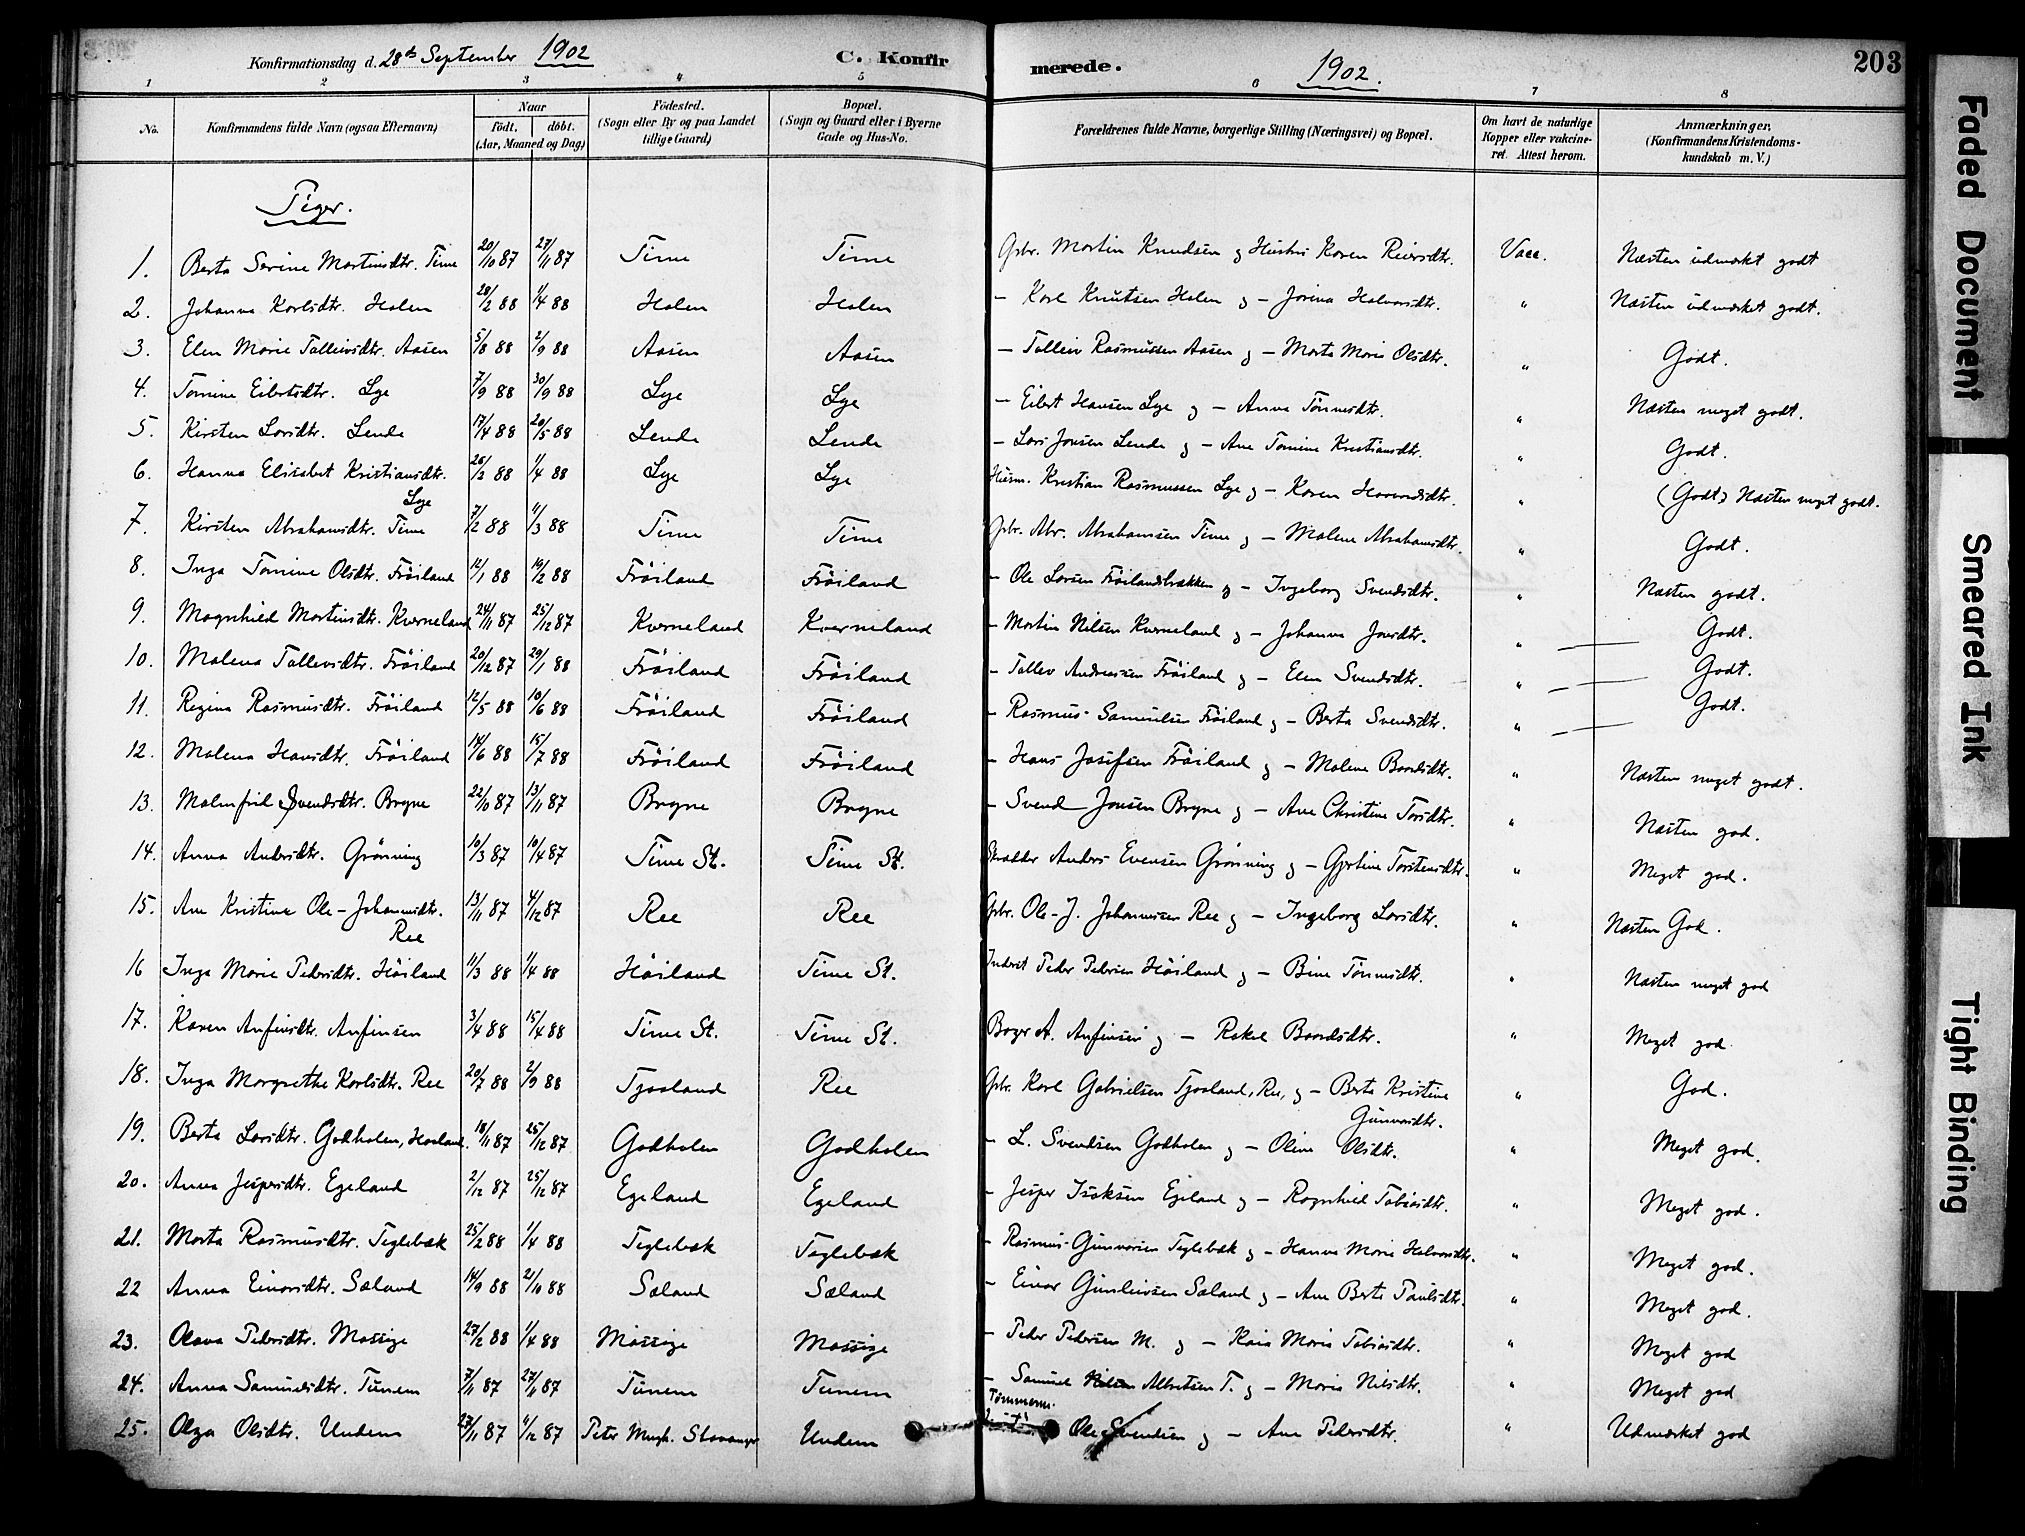 203
Konfirmationsdag d. 28de September 1902
C. Konfir
merede.
1902.
1 2 3 4 5 6 7 8
No.
Konfirmandens fulde Navn (ogsaa Efternavn)
Naar
födt. döbt.
(Aar, Maaned og Dag)
Födested.
(Sogn eller By og paa Landet
tillige Gaard)
Bopæl.
(Sogn og Gaard eller i Byerne
Gade og Hus-No.
Forældrenes fulde Navne, borgerlige Stilling (Næringsvei) og Bopæl.
Om havt de naturlige
Kopper eller vakcine-
ret. Attest herom.
Anmærkninger.
(Konfirmandens Kristendoms-
kundskab m. V.)
Piger.
1. Berta Serine Martinsdtr. Time 20/10 87 27/11 87 Time Time Gbr. Martin Knudsen og Hustru Karen Reiersdtr. Vacc. Næsten udmærket godt
2. Johanna Karlsdtr. Holen 28/2 88 1/4 88 Holen Holen – Karl Knutsen Holen og – Jorina Halvorsdtr. " Næsten udmærket godt.
3. Elen Marie Talleivsdtr. Aasen 5/8 88 2/9 88 Aasen Aasen – Talleiv Rasmussen Aasen og – Marta Marie Olsdtr. " Godt.
4. Tomine Eilertsdtr. Lye 7/9 88 30/9 88 Lye Lye – Eilert Hansen Lye og – Anna Tönnesdtr. " Næsten meget godt.
5. Kirsten Larsdtr. Lende 17/4 88 20/5 88 Lende Lende – Lars Jonsen Lende og – Ane Tomine Kristiansdtr. " Godt.
6. Hanna Elisabet Kristiansdtr. 26/2 88 1/4 88 Lye Lye Husm. Kristian Rasmussen Lye og – Karen Haavardsdtr. " (Godt) Næsten meget godt.
Lye
7. Kirsten Abrahamsdtr. Time 7/2 88 11/3 88 Time Time Gbr. Abr. Abrahamsen Time og – Malene Abrahamsdtr. " Godt.
8. Inga Tomine Olsdtr. Fröiland 12/1 88 19/2 88 Fröiland Fröiland – Ole Larsen Fröilandsbakken og – Ingeborg Svendsdtr. " Næsten godt.
9. Magnhild Martinsdtr. Kverneland 24/11 87 25/12 87 Kverneland Kverneland – Martin Nilsen Kverneland og – Johanna Jonsdtr. " Godt.
10. Malena Tallevsdtr. Fröiland 20/12 87 29/1 88 Fröiland Fröiland – Tallev Andreassen Fröiland og – Elen Svendsdtr. " Godt.
11. Regina Rasmusdtr. Fröiland 12/5 88 10/6 88 Fröiland Fröiland – Rasmus Samuelsen Fröiland og – Berta Svendsdtr. " Godt.
12. Malena Hansdtr. Fröiland 14/6 88 15/7 88 Fröiland Fröiland – Hans Josefsen Fröiland og – Malene Baardsdtr. " Næsten meget godt.
13. Malmfrid Svendsdtr. Bryne 22/10 87 13/11 87 Bryne Bryne – Svend Jonsen Bryne og – Ane Christine Torsdtr. " Næsten god.
14. Anna Andersdtr. Grönning 10/3 87 10/4 87 Time St. Time St. Skrædder Anders Evensen Grönning og – Gjertine Torstensdtr. " Meget god.
15. Ane Kristine Ole-Johannesdtr. 13/11 87 4/12 87 Ree Ree Gbr. Ole-J. Johannesen Ree og – Ingeborg Larsdtr. " Næsten God.
Ree
16 Inga Marie Pedersdtr. Höiland 11/3 88 1/4 88 Höiland Time St. Inderst Peder Pedersen Höiland og – Bine Tönnesdtr. " Næsten meget god
17. Karen Anfinsdtr. Anfinsen 3/4 88 15/4 88 Time St. Time St. Bager A. Anfinsen og – Rakel Baardsdtr. " Meget god
18. Inga Margrethe Karlsdtr. Ree 20/7 88 2/9 88 Tjaaland Ree Gbr. Karl Gabrielsen Tjaaland, Ree, og – Berta Kristine " God.
Gunvorsdtr.
19. Berta Larsdtr. Godholen, Haaland. 18/11 87 25/12 87 Godholen Godholen – L. Svendsen Godholen og – Oline Olsdtr. " Meget god.
20. Anna Jespersdtr. Egeland 2/12 87 25/12 87 Egeland Egeland – Jesper Isaksen Egeland og – Ragnhild Tobiasdtr. " Meget god.
21. Marta Rasmusdtr. Teglebæk 25/2 88 1/4 88 Teglebæk Teglebæk – Rasmus Gunvorsen Teglebæk og – Hanna Marie Halvorsdtr. " Meget god.
22 Anna Einarsdtr. Sæland 14/9 88 21/10 88 Sæland Sæland – Einar Gunleivsen Sæland og – Ane Berte Paulsdtr. " Meget god.
23. Olava Pedersdtr. Mossige 27/2 88 1/4 88 Mossige Mossige – Peder Pedersen M. og – Kaia Maria Tobiasdtr. " Meget god
24. Anna Samuelsdtr. Tunem 7/11 87 27/11 87 Tunem Tunem – Samuel Albretsen T. og – Maria Nilsdtr. " Meget god
25. Olga Olsdtr. Undem 27/11 87 11/12 87 Petri Mngh. Stavanger Undem Tömmerm. Ole Svendsen og – Ane Pedersdtr. " Udmærket god
Faded Document
Smeared Ink
Tight Binding